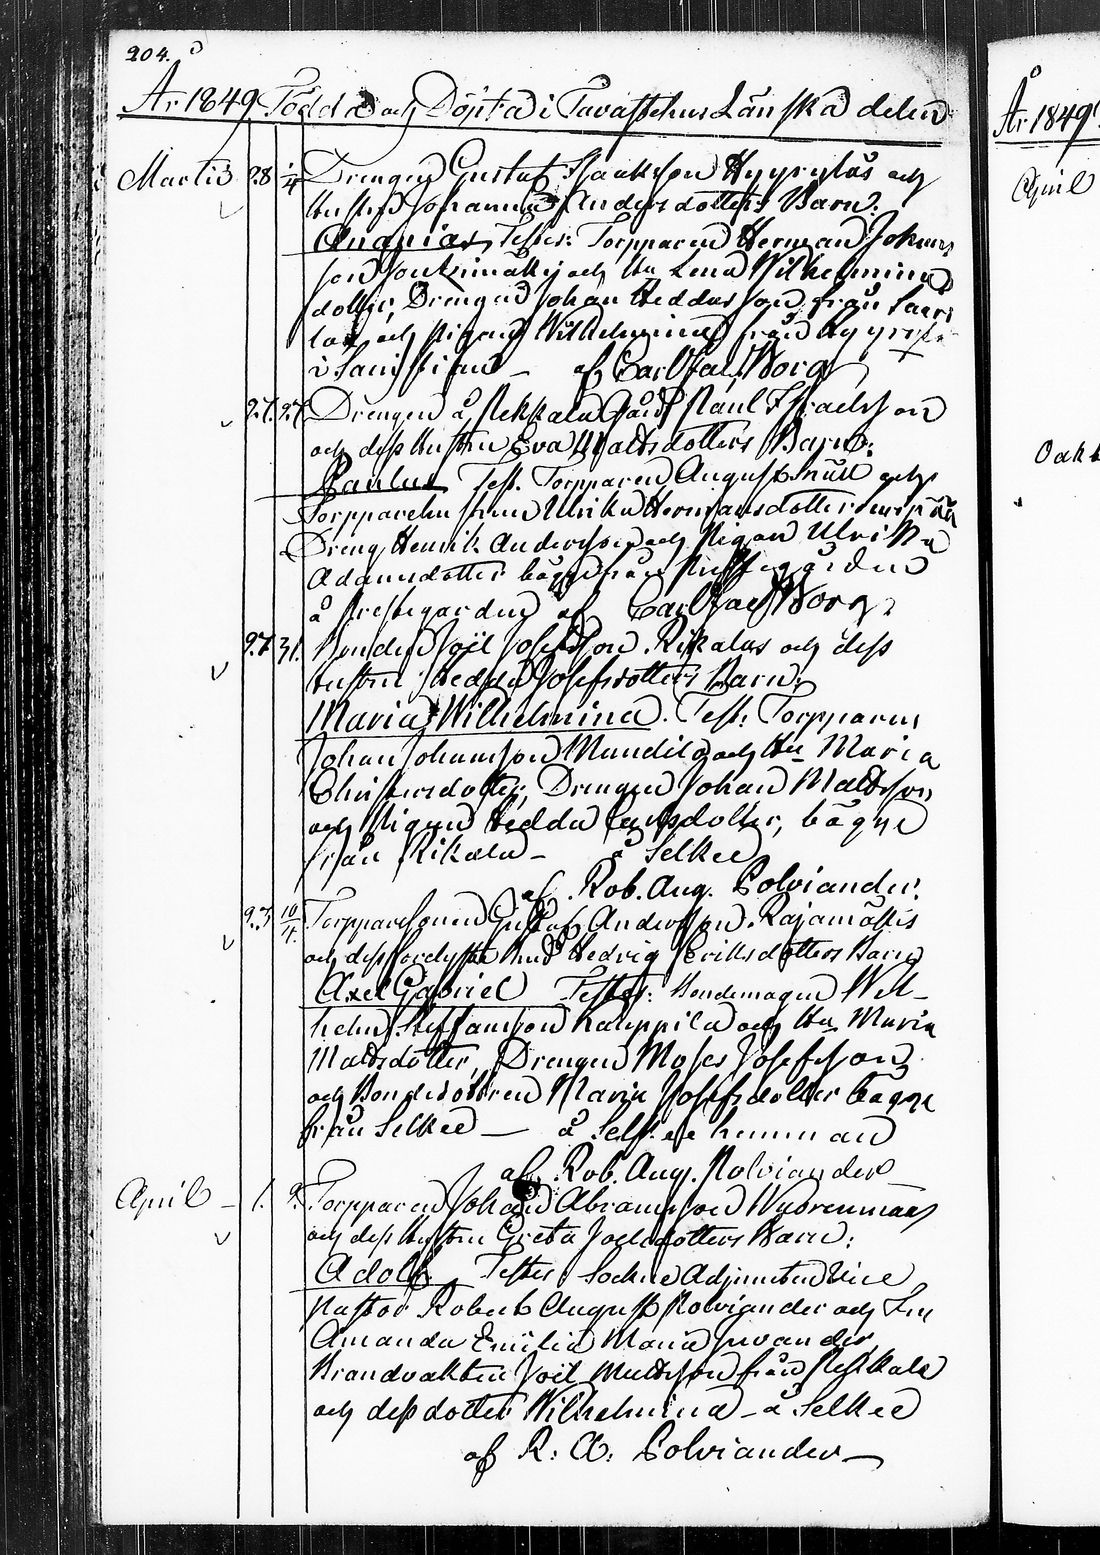 204.
År 1849 Födda och Döpta i Tavastehus Länska delen
Martii 28 1/4 Drengen Gustaf Isaaksson Hyyrylas och
Hustrus Johanna Andersdotters Barn:
Ananias, Testes: Torpparen Herman Johans
son och Hu Lena Wilhelmina
dotter, Drengen Johan Heddasson från
och Pigan Wilhelmina från
i af Carl Jac. Worg
27. 27 Drengen å Pekkala Gård Paul Isracksson
och dess Hustru Eva Mattsdotters Barn:
Paulus Test. Torpparen August och
Torpparehustrun Ulrika Hermansdotter
Dreng Henrik Andersson och Pigan Ulrika
Adamsdotter bägge från Prestegården
å Prestegården af Carl Jac Worg.
27 31. Bonden Joel Josefsson Rikalas och dess
hustru Hedda Josefsdotters Barn:
Maria Wilhelmina. Test: Torpparen
Johan Johansson Mundila och Hu Maria
Christersdotter, Drengen Johan Mattsson
och Pigan Hedda dotter, bägge
från Rikala – å Selkee
af Rob. Aug. Polviander.
23 10/4. Torpparesonen Gustaf Andersson Rajamäkis
och dess Hedvig Eriksdotters Barn
Axel Gabriel Testes: Bondemagen Wil-
helm Steffansson Kauppila och Hu Maria
Mattsdotter, Drengen Moses Josefsson
och Bondedottren Maria Josefsdotter bägge
från Selkee — å Selkee hemman
af Rob. Aug. Polviander
April – 1. 9. Torpparen Johan Abramsson Wuorenmaas
och dess Hustru Greta Joelsdotters Barn:
Adolf Testes: Sockne Adjuncten Vice
Pastor Robert August Polviander och Fru
Amanda Emilia Maria
Brandvakten Joel Mattsson från
och dess dotter Wilhelmina – å Selkee
af R: A: Polviander —
År 1849
April